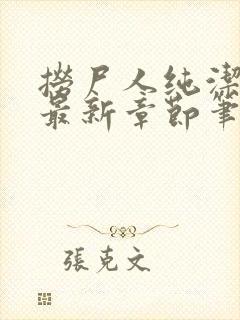 撈尸人純潔
最新章節筆
張克文